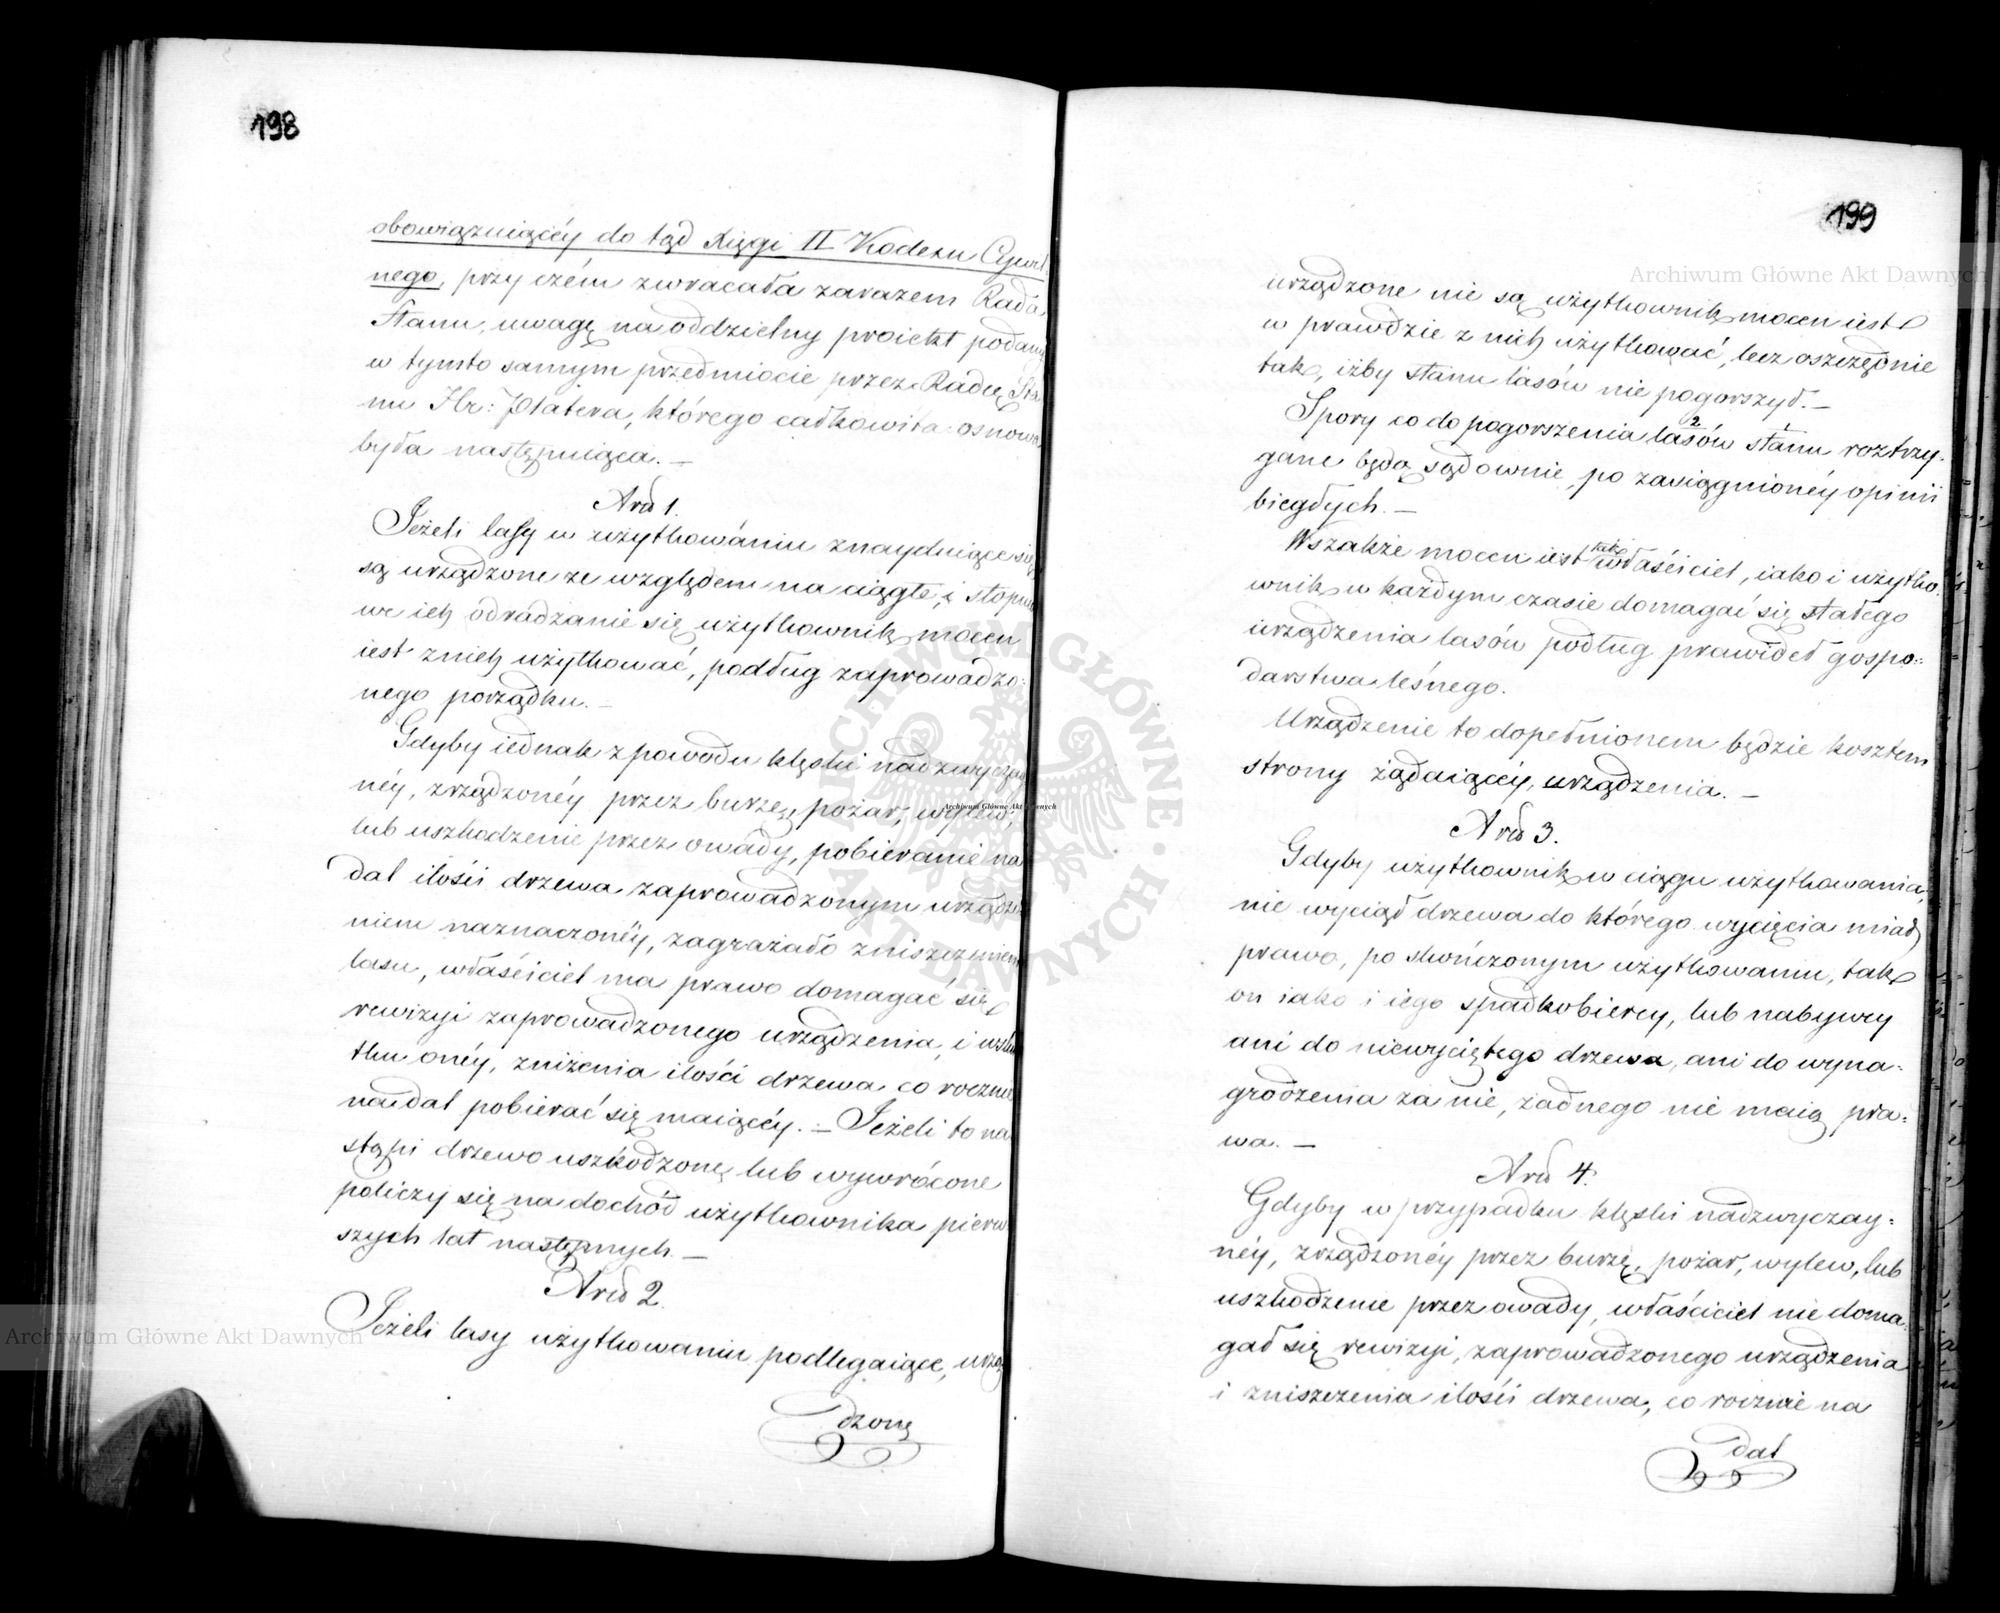 198
obowiązuiącéy do tąd Xięgi II Kodexu Cywil
nego, przy czém zwracała zarazem Rada
Stanu, uwagę na oddzielny proiekt podany
w tymto samym przedmiocie przez Radcę Sta
nu Hr: Platera, którego całkowita osnowa
była następuiąca. —
Art 1.
Jeżeli lasy w użytkowániu znayduiące się
są urządzone ze względem na ciągłe, i stopnio
we ich odradzanie się użytkownik mocen
iest znich użytkować, podług zaprowadzo:
nego porządku. —
Gdyby iednak z powodu klęski nadzwyczay
néy, zrządzonéy przez burzę, pożar, wylew,
lub uszkodzenie przez owady, pobieranie na
dal ilości drzewa zaprowadzonym urządze
niem naznaczonéy, zagrażało zniszczeniem
lasu, właściciel ma prawo domagać się
rewizyi zaprowadzonego urządzenia, i wsku
tku onéy, zniżenia ilości drzewa co rocznie
nadal pobierać się maiącéy. — Jeżeli to na
stąpi drzewo uszkodzone lub wywrócone
policzy się na dochód użytkownika pierw
szych lat następnych. —
Art 2.
Jeżeli lasy użytkowaniu podlegaiące, urzą
dzone
199
urządzone nie są użytkownik mocen iest
w prawdzie z nich użytkować, lecz oszczędnie
tak, iżby stanu lasów nie pogorszył. —
Spory co do pogorszenia lasów stanu roztrzy-
2 1
gane będą sądownie, po zasiągnionéy opinii
biegłych. —
Wszakże mocen iest tak właściciel, iako i użytko
wnik w każdym czasie domagać się stałego
urządzenia lasów podług prawideł gospo:
darstwa leśnego.
Urządzenie to dopełnionem będzie kosztem
strony żądaiącéy, urządzenia. —
Art 3.
Gdyby użytkownik w ciągu użytkowania,
nie wyciął drzewa do którego wycięcia miał
prawo, po skończonym użytkowaniu, tak
on iako i iego spadkobiercy, lub nabywcy
ani do niewyciętego drzewa, ani do wyna-
grodzenia za nie, żadnego nie maią pra-
wa. —
Art 4.
Gdyby w przypadku klęski nadzwyczay-
néy, zrządzonéy przez burzę, pożar, wylew, lub
uszkodzenie przez owady, właściciel nie doma
gał się rewizyi, zaprowadzonego urządzenia
i zniszczenia ilości drzewa, co rocznie na
dal
Archiwum Główne Akt Dawnych
Archiwum Główne Akt Dawnych
Archiwum Główne Akt Dawnych
ARCHIWUM GŁÓWNE · AKT DAWNYCH ·